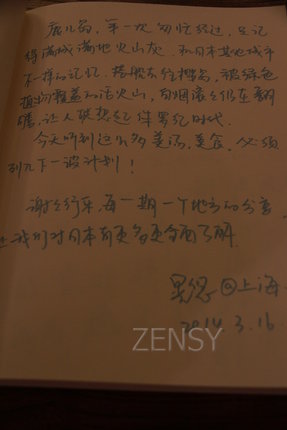 鹿儿岛,第一次匆忙经过,只记
得满城满地火山灰,和日本其他城市
不一样的记忆。搭船去往樱岛,被绿色
植物覆盖的活火山,白烟滚滚仍在翻
腾,让人联想起侏罗纪时代。
今天听到这么多美汤、美食,必须
列入下一波计划!
谢谢行乐,每一期一个地方的分享,
让我们对日本有更多更全面了解。
@上海
2014.3.16
ZENSY